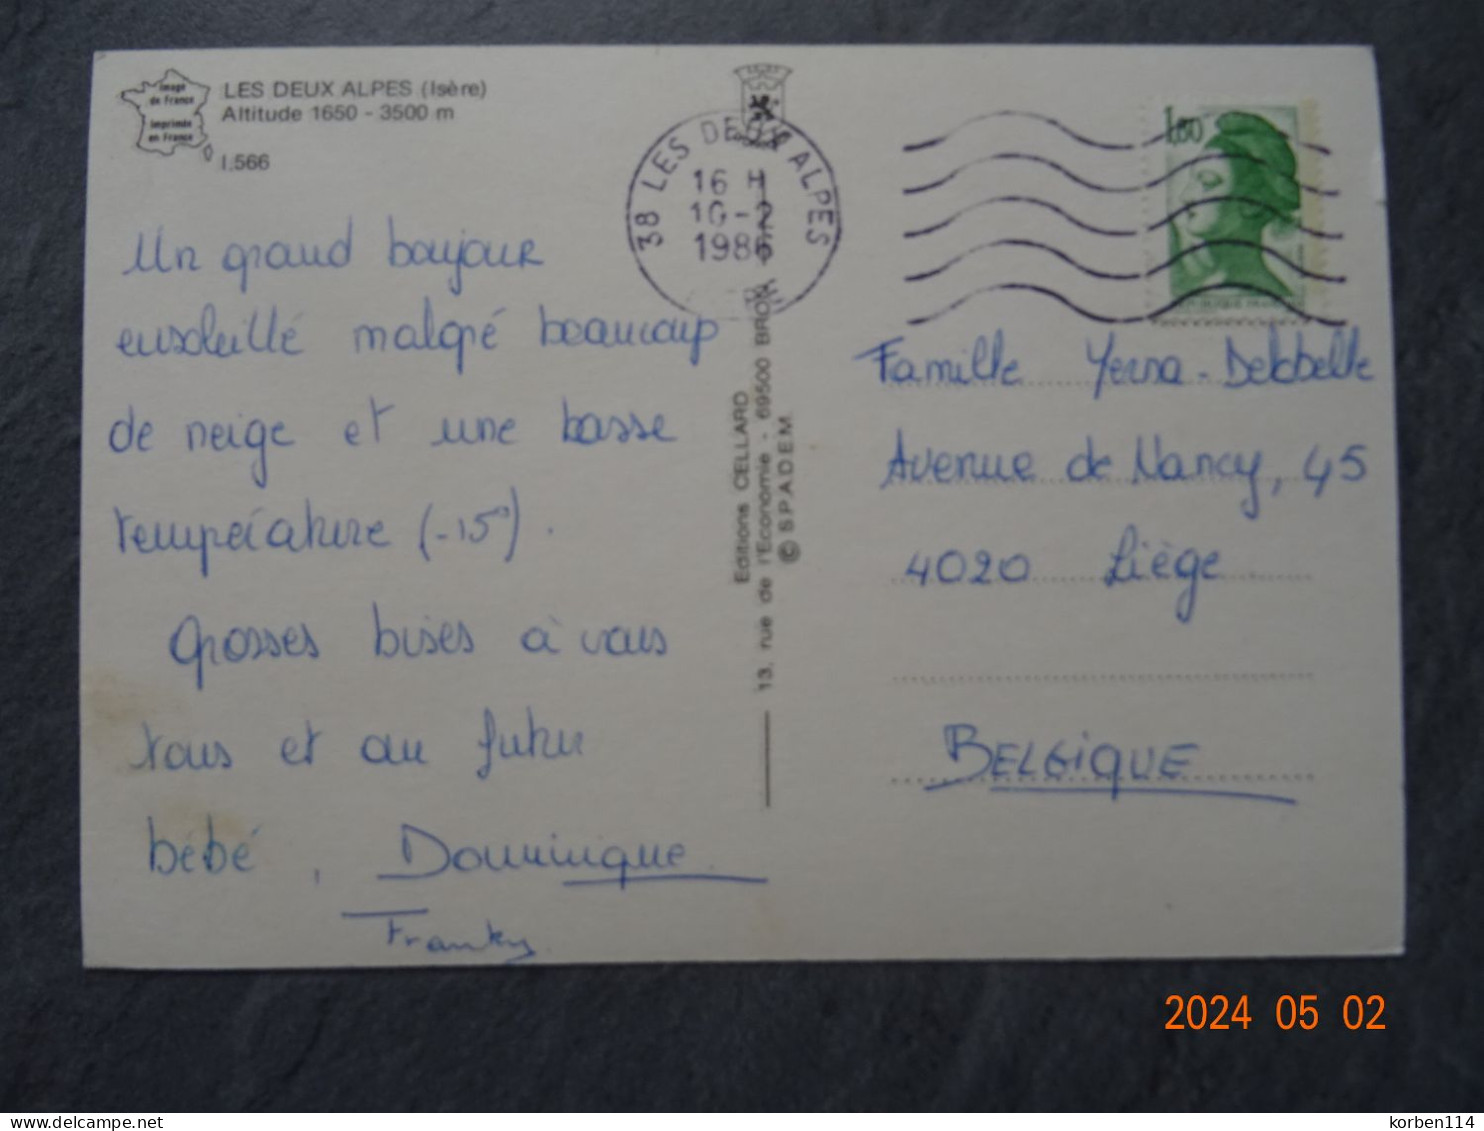 Image
de France
Imprimée
en France
LES DEUX ALPES (Isère)
Altitude 1650 - 3500 m
I.566
Un grand bonjour
ensoleillé malgré beaucoup
de neige et une basse
température (-15°).
Grosses bises à vous
tous et au futur
bébé, Dominique
Franky
38 LES DEUX ALPES
16 H
10-2
1986
Editions CELLARD
13, rue de l'Economie - 69500 BRON
© S.P.A.D.E.M.
1,80
Famille Yerna-Delobelle
Avenue de Nancy, 45
4020 Liège
BELGIQUE
2024 05 02
delcampe.net
korben114